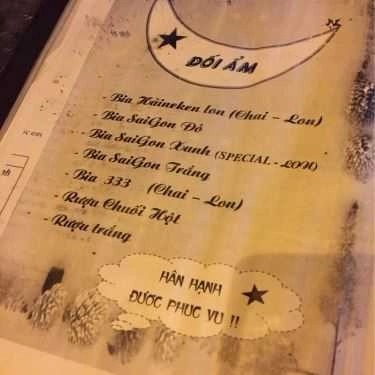 ĐỐI ẨM
- Bia Hâineken lon (Chai - Lon)
- Bia SaiGon Đỏ
- Bia SaiGon Xanh (SPECIAL - LON)
- Bia SaiGon Trắng
- Bia 333 (Chai - Lon)
- Rượu Chuối Hột
- Rượu trắng
HÂN HẠNH
ĐƯỢC PHỤC VỤ !!